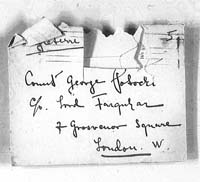 5
Count George Potocki
c/o. Lord Farquhar
7 Grosvenor Square
London. W.